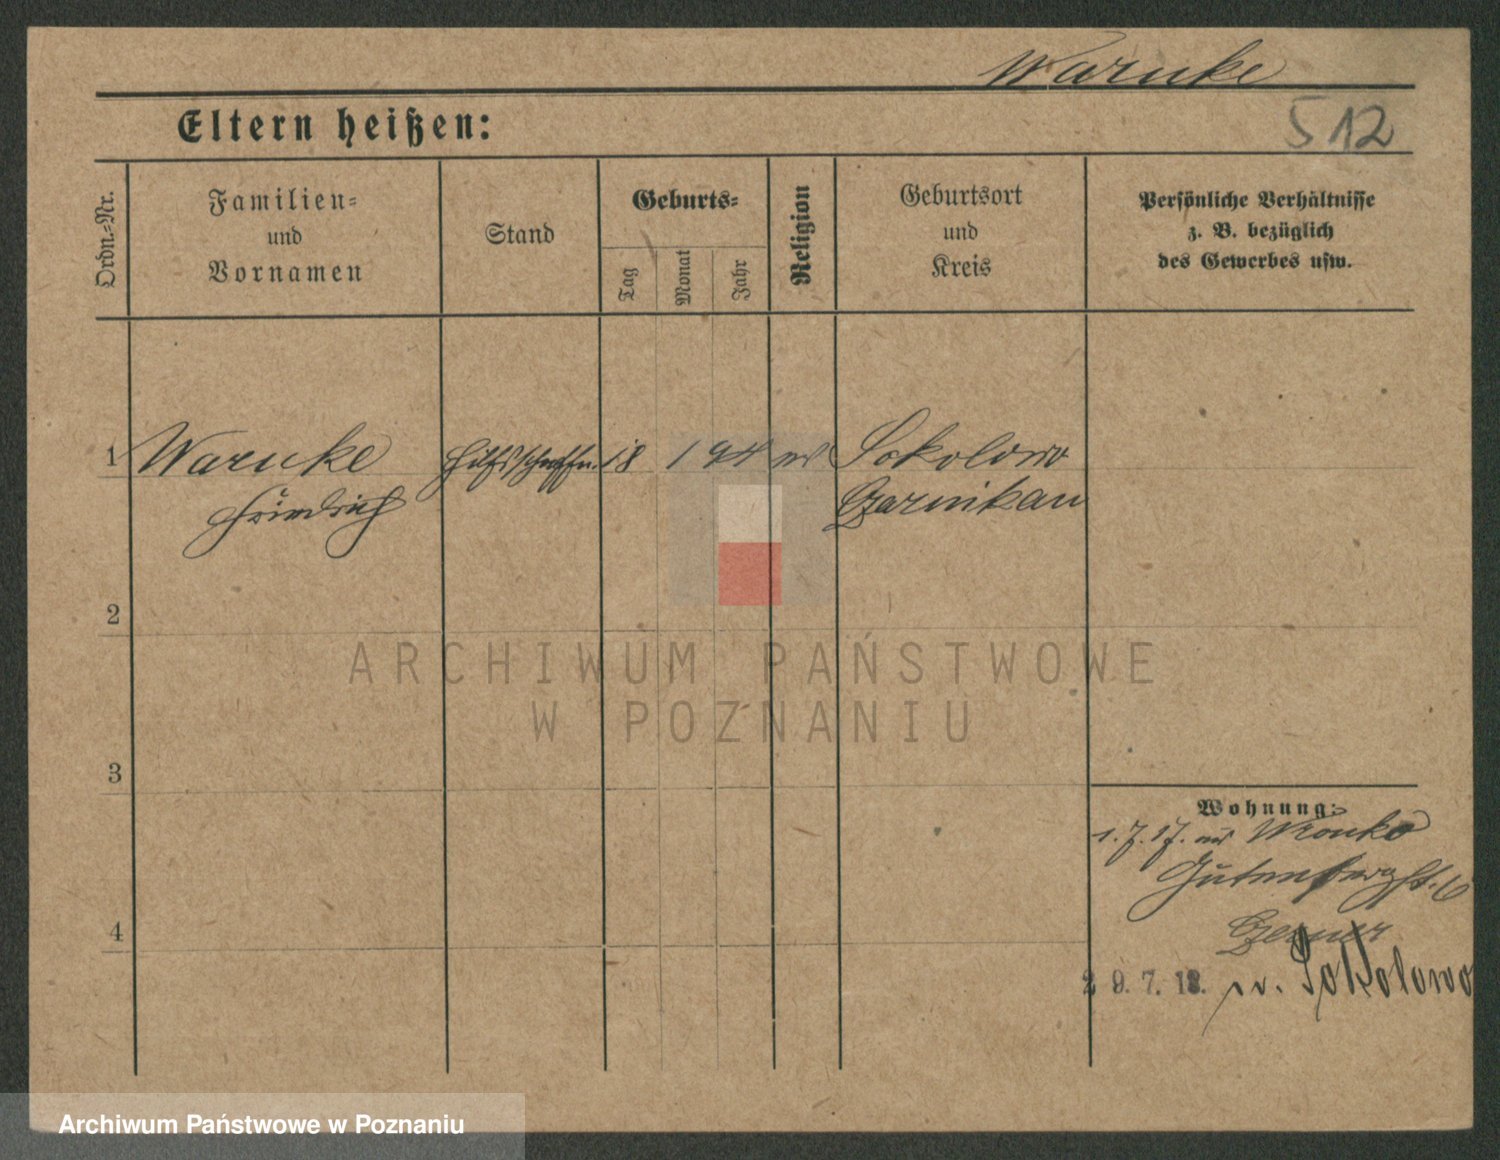 Warnke
512
Eltern heißen:
Ordn.-Nr.
Familien-
und
Vornamen
Stand
Geburts-
Tag
Monat
Jahr
Religion
Geburtsort
und
Kreis
Persönliche Verhältnisse
z. B. bezüglich
des Gewerbes usw.
1 Warnke Hilfsschaffn. 18 1 94 Sokolowo
Friedrich Czarnikau
2
3
4
Wohnung:
1.7.17. Wronke
Gutenbergst. 6
29.7.18. n. Sokolowo
ARCHIWUM PAŃSTWOWE
W POZNANIU
Archiwum Państwowe w Poznaniu